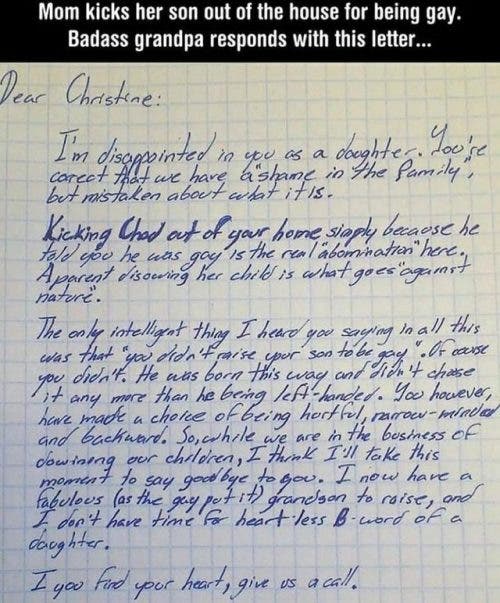 Mom kicks her son out of the house for being gay.
Badass grandpa responds with this letter...
Dear Christine:
I'm disappointed in you as a daughter. You're
corect that we have a "shame in the family",
but mistaken about what it is.
Kicking Chad out of your home simply because he
told you he was gay is the real "abomination" here.
A parent disowing her child is what goes "against
nature".
The only intelligent thing I heard you saying in all this
was that "you didn't raise your son to be gay". Of course
you didn't. He was born this way and didn't choose
it any more than he being left-handed. You however,
have made a choice of being hurtful, narrow-minded
and backward. So, while we are in the business of
disowning our children, I think I'll take this
moment to say goodbye to you. I now have a
fabulous (as the gay put it) grandson to raise, and
I don't have time for heart-less B-word of a
daughter.
I you find your heart, give us a call.